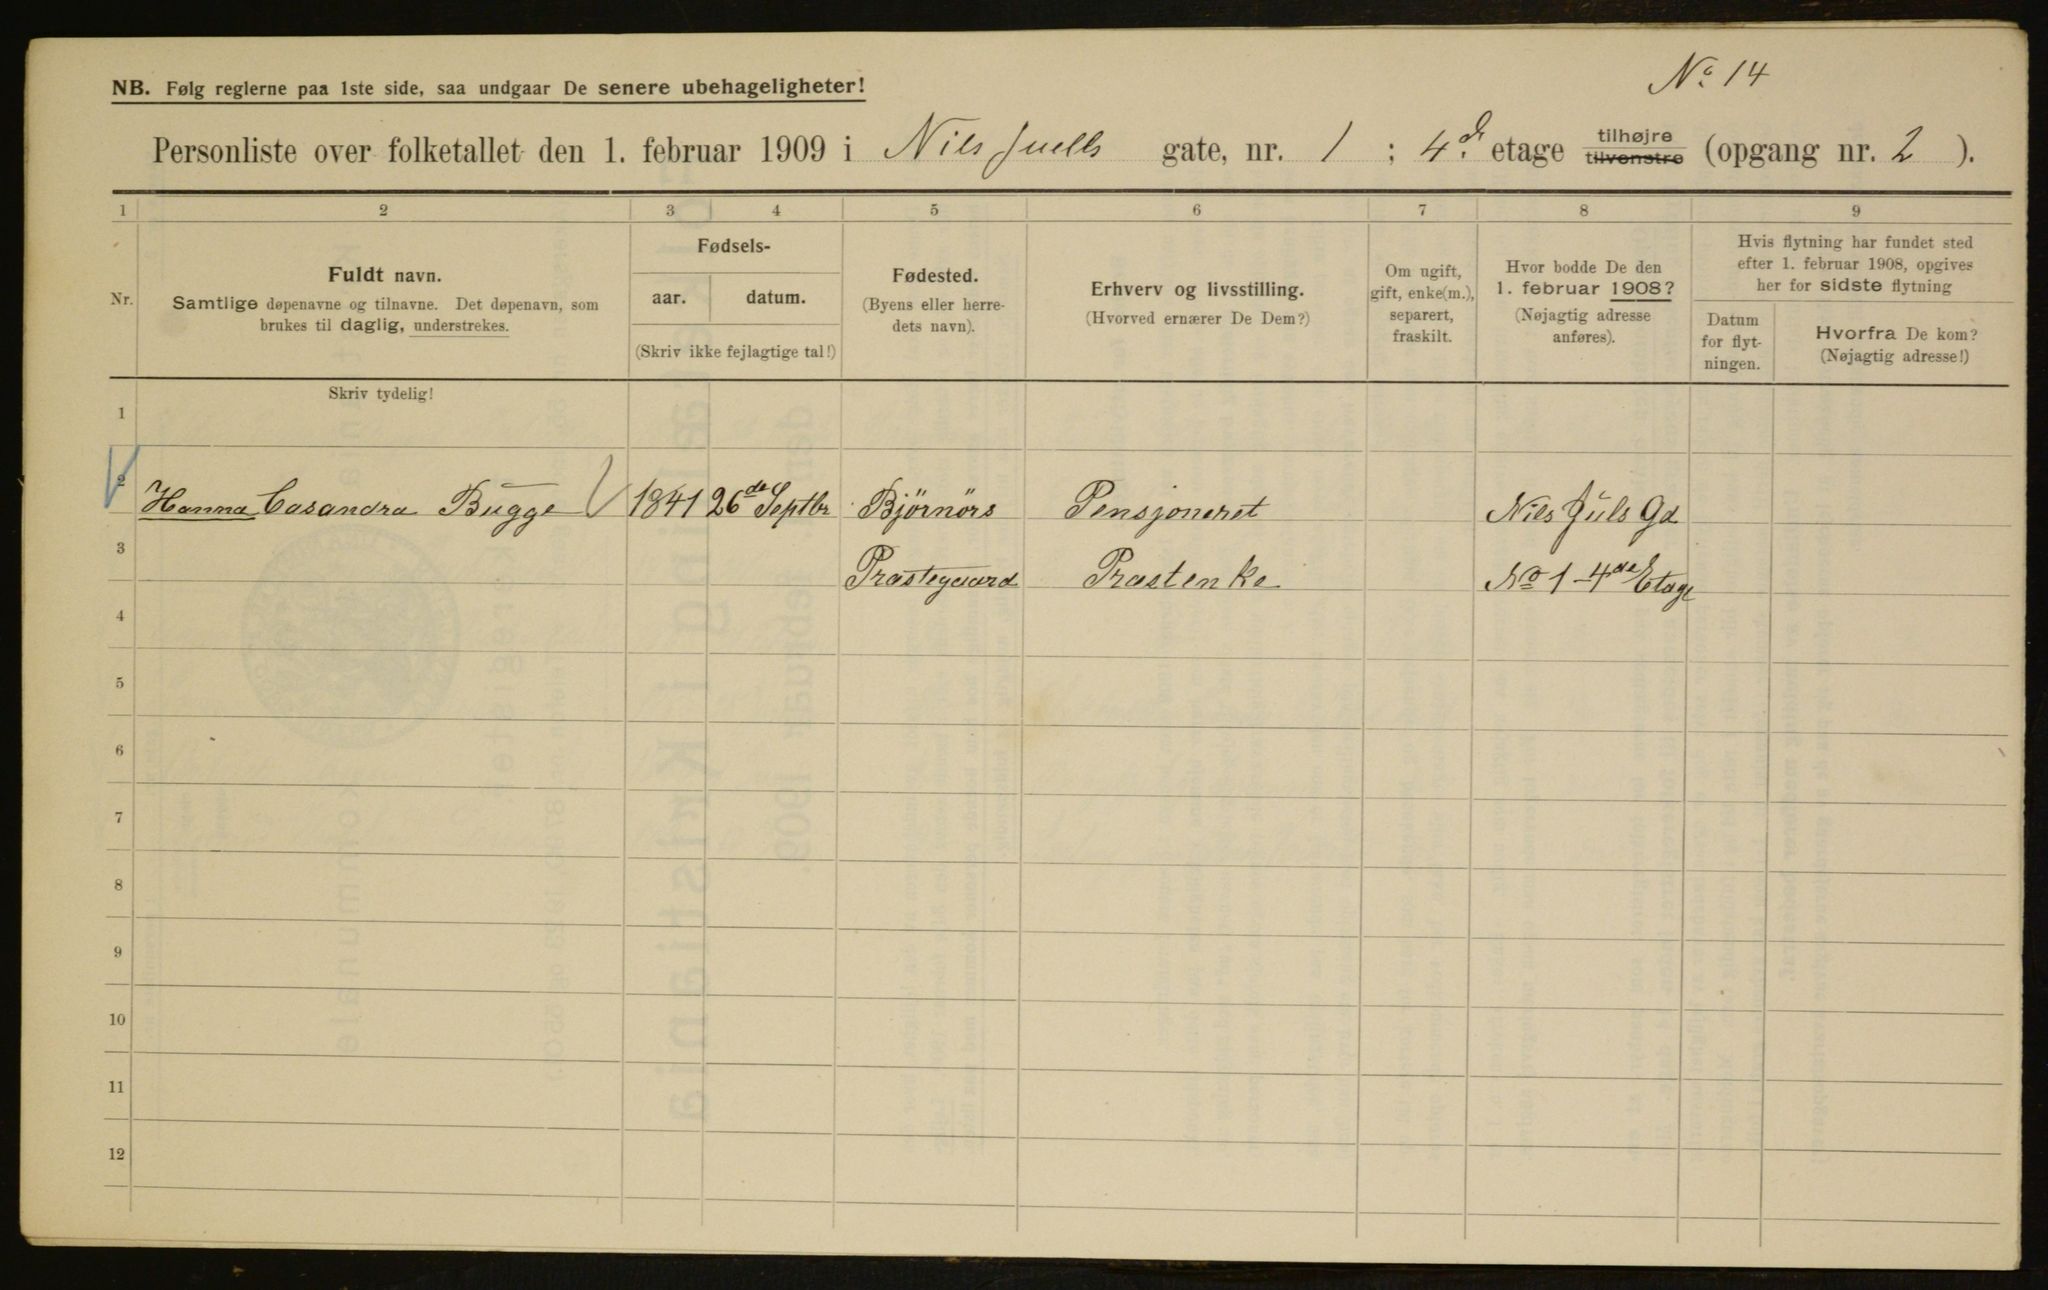 No 14
NB. Følg reglerne paa 1ste side, saa undgaar De senere ubehageligheter!
Personliste over folketallet den 1. februar 1909 i Nils Juells gate, nr. 1 ; 4.d etage tilhøjre tilvenstre (opgang nr. 2 ).
1 2 3 4 5 6 7 8 9
Nr.
Fuldt navn.
Samtlige døpenavne og tilnavne. Det døpenavn, som
brukes til daglig, understrekes.
Fødsels-
aar. datum.
(Skriv ikke fejlagtige tal!)
Fødested.
(Byens eller herre-
dets navn).
Erhverv og livsstilling.
(Hvorved ernærer De Dem?)
Om ugift,
gift, enke(m.),
separert,
fraskilt.
Hvor bodde De den
1. februar 1908?
(Nøjagtig adresse
anføres).
Hvis flytning har fundet sted
efter 1. februar 1908, opgives
her for sidste flytning
Datum
for flyt-
ningen.
Hvorfra De kom?
(Nøjagtig adresse!)
Skriv tydelig!
1
2 Hanna Casandra Bugge 1841 26de Septbr Bjørnørs Pensjoneret Nils Juls Gd
3 Præstegaard Præstenke No 1 4de Etage
4
5
6
7
8
9
10
11
12